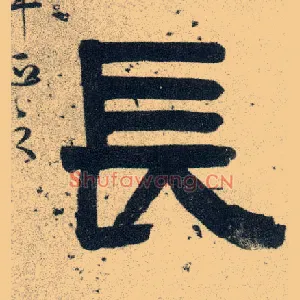 長
Shufawang.CN